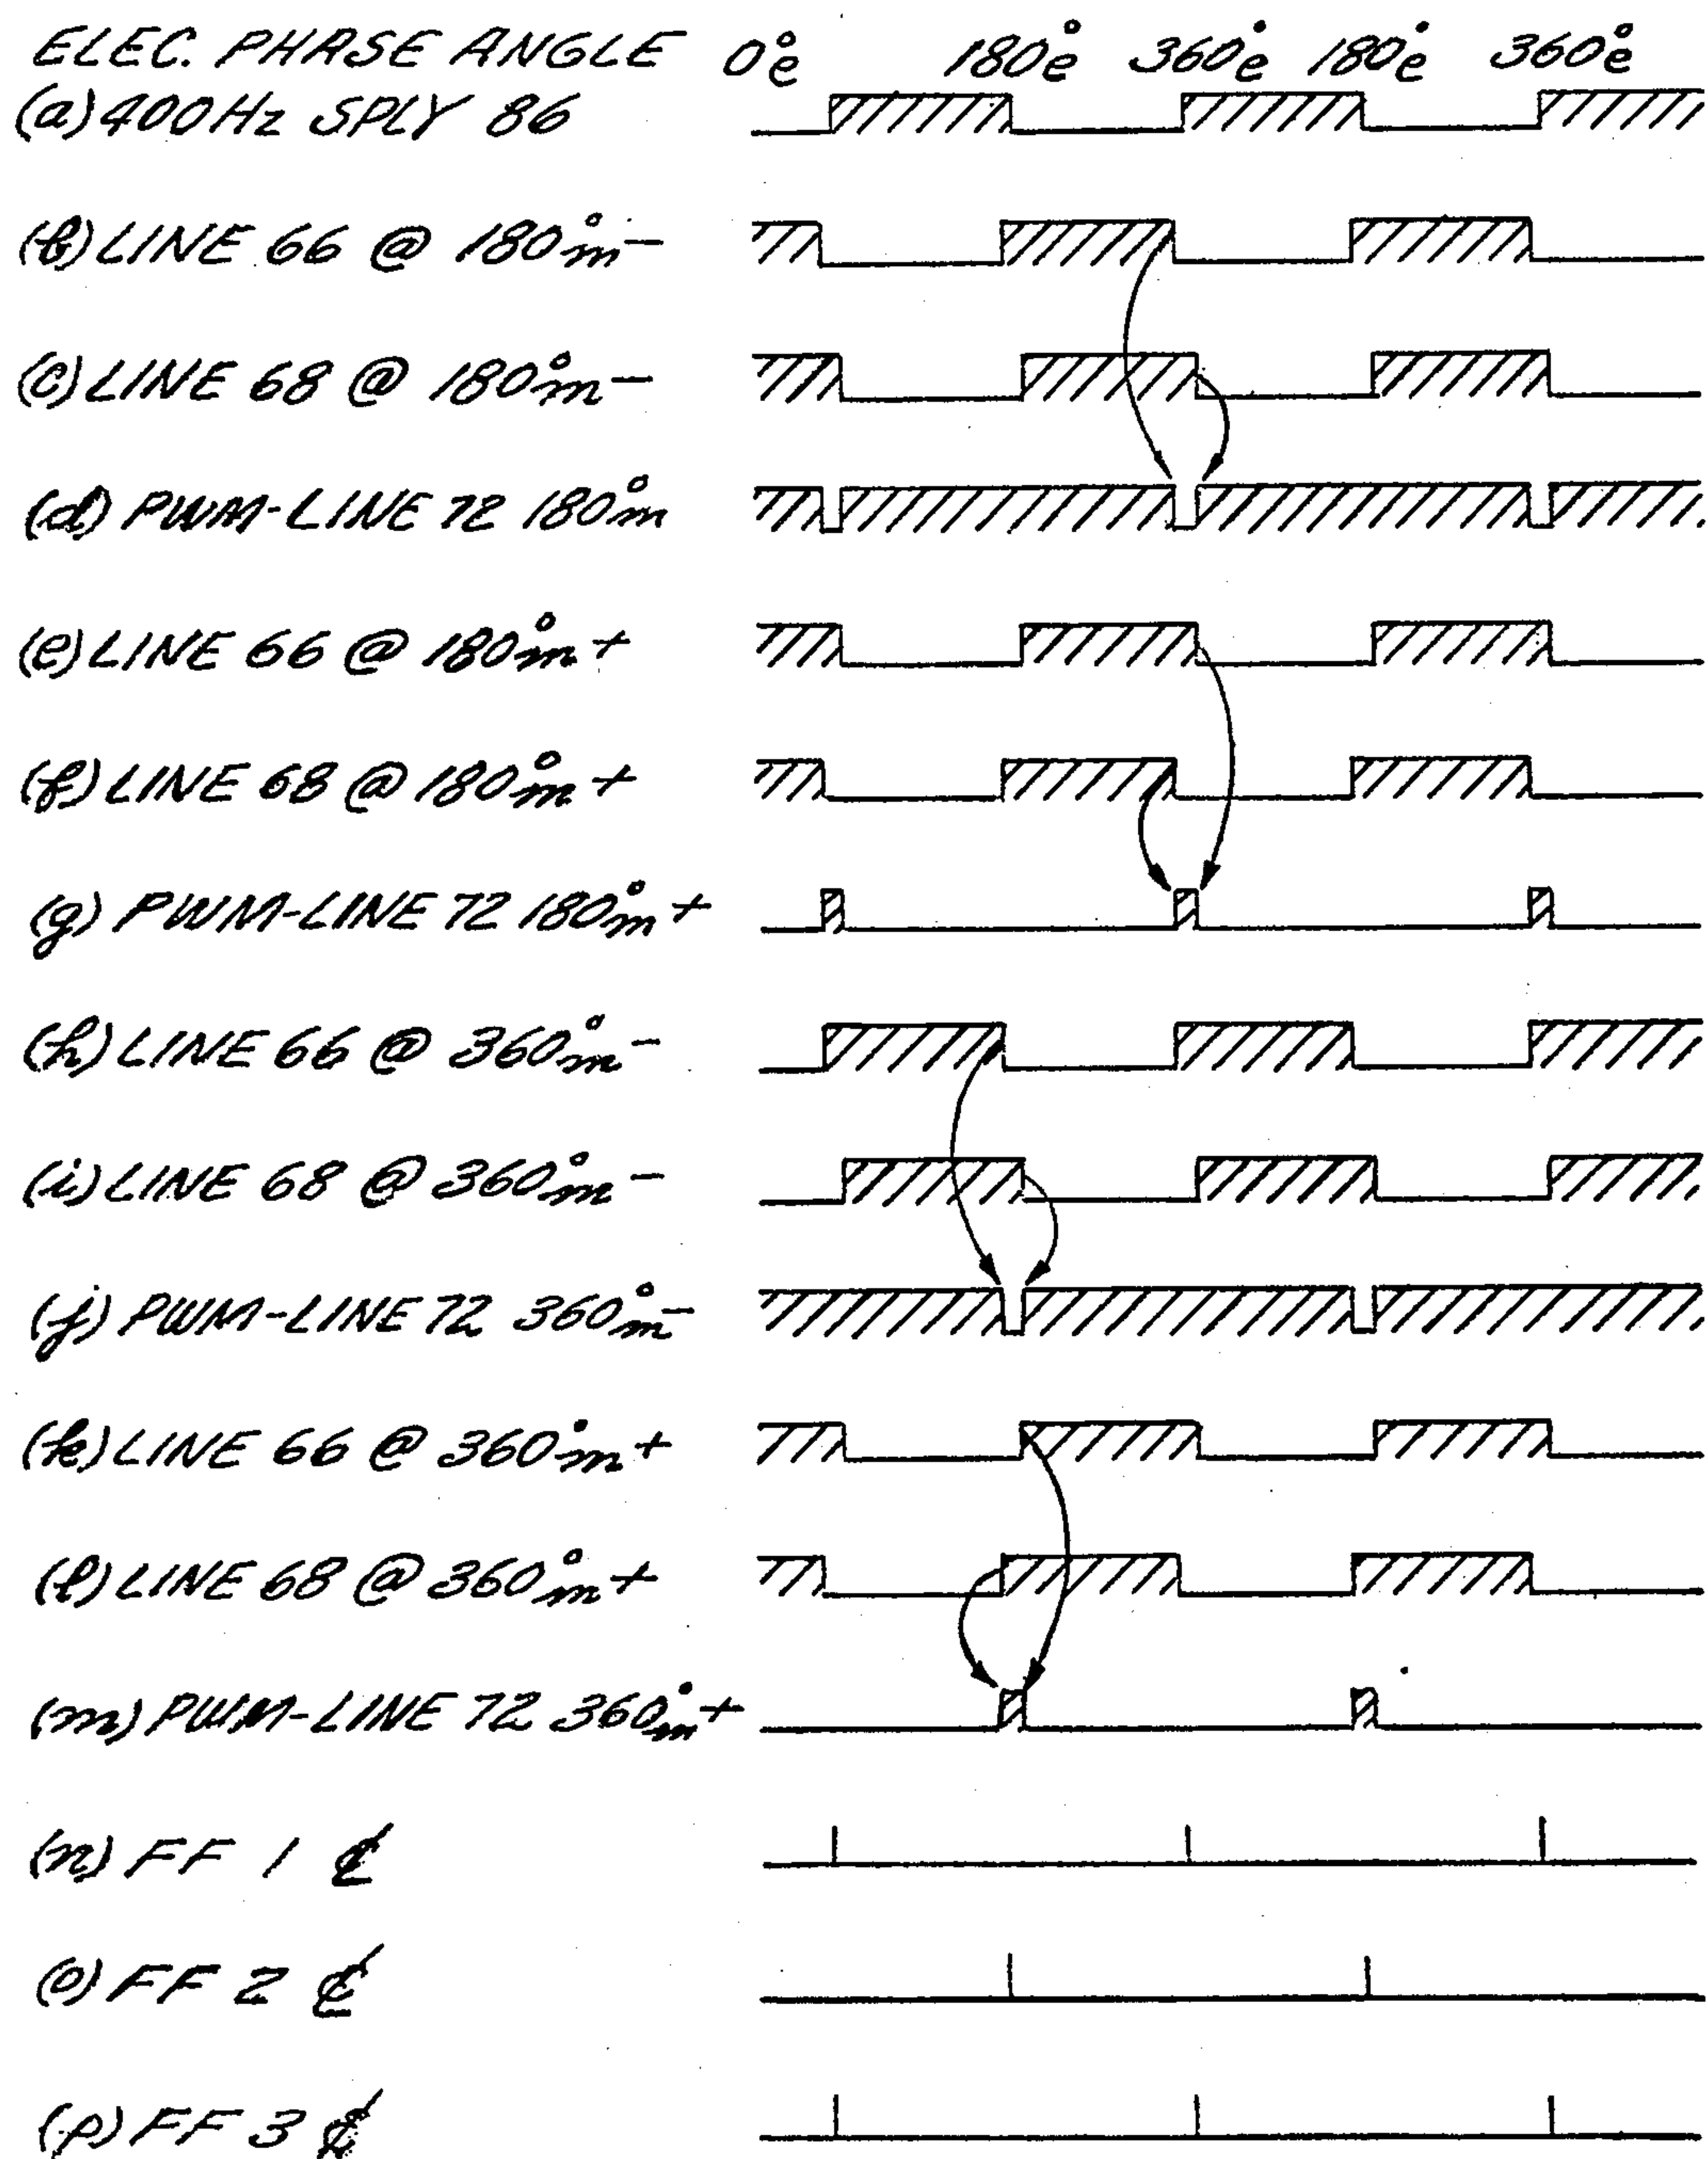 ELEC. PHASE ANGLE 0°e 180°e 360°e 180°e 360°e
(a) 400Hz SPLY 86
(b) LINE 66 @ 180°m-
(c) LINE 68 @ 180°m-
(d) PWM-LINE 72 180°m
(e) LINE 66 @ 180°m+
(f) LINE 68 @ 180°m+
(g) PWM-LINE 72 180°m+
(h) LINE 66 @ 360°m-
(i) LINE 68 @ 360°m-
(j) PWM-LINE 72 360°m-
(k) LINE 66 @ 360°m+
(l) LINE 68 @ 360°m+
(m) PWM-LINE 72 360°m+
(n) FF 1 ¢
(o) FF 2 ¢
(p) FF 3 ¢